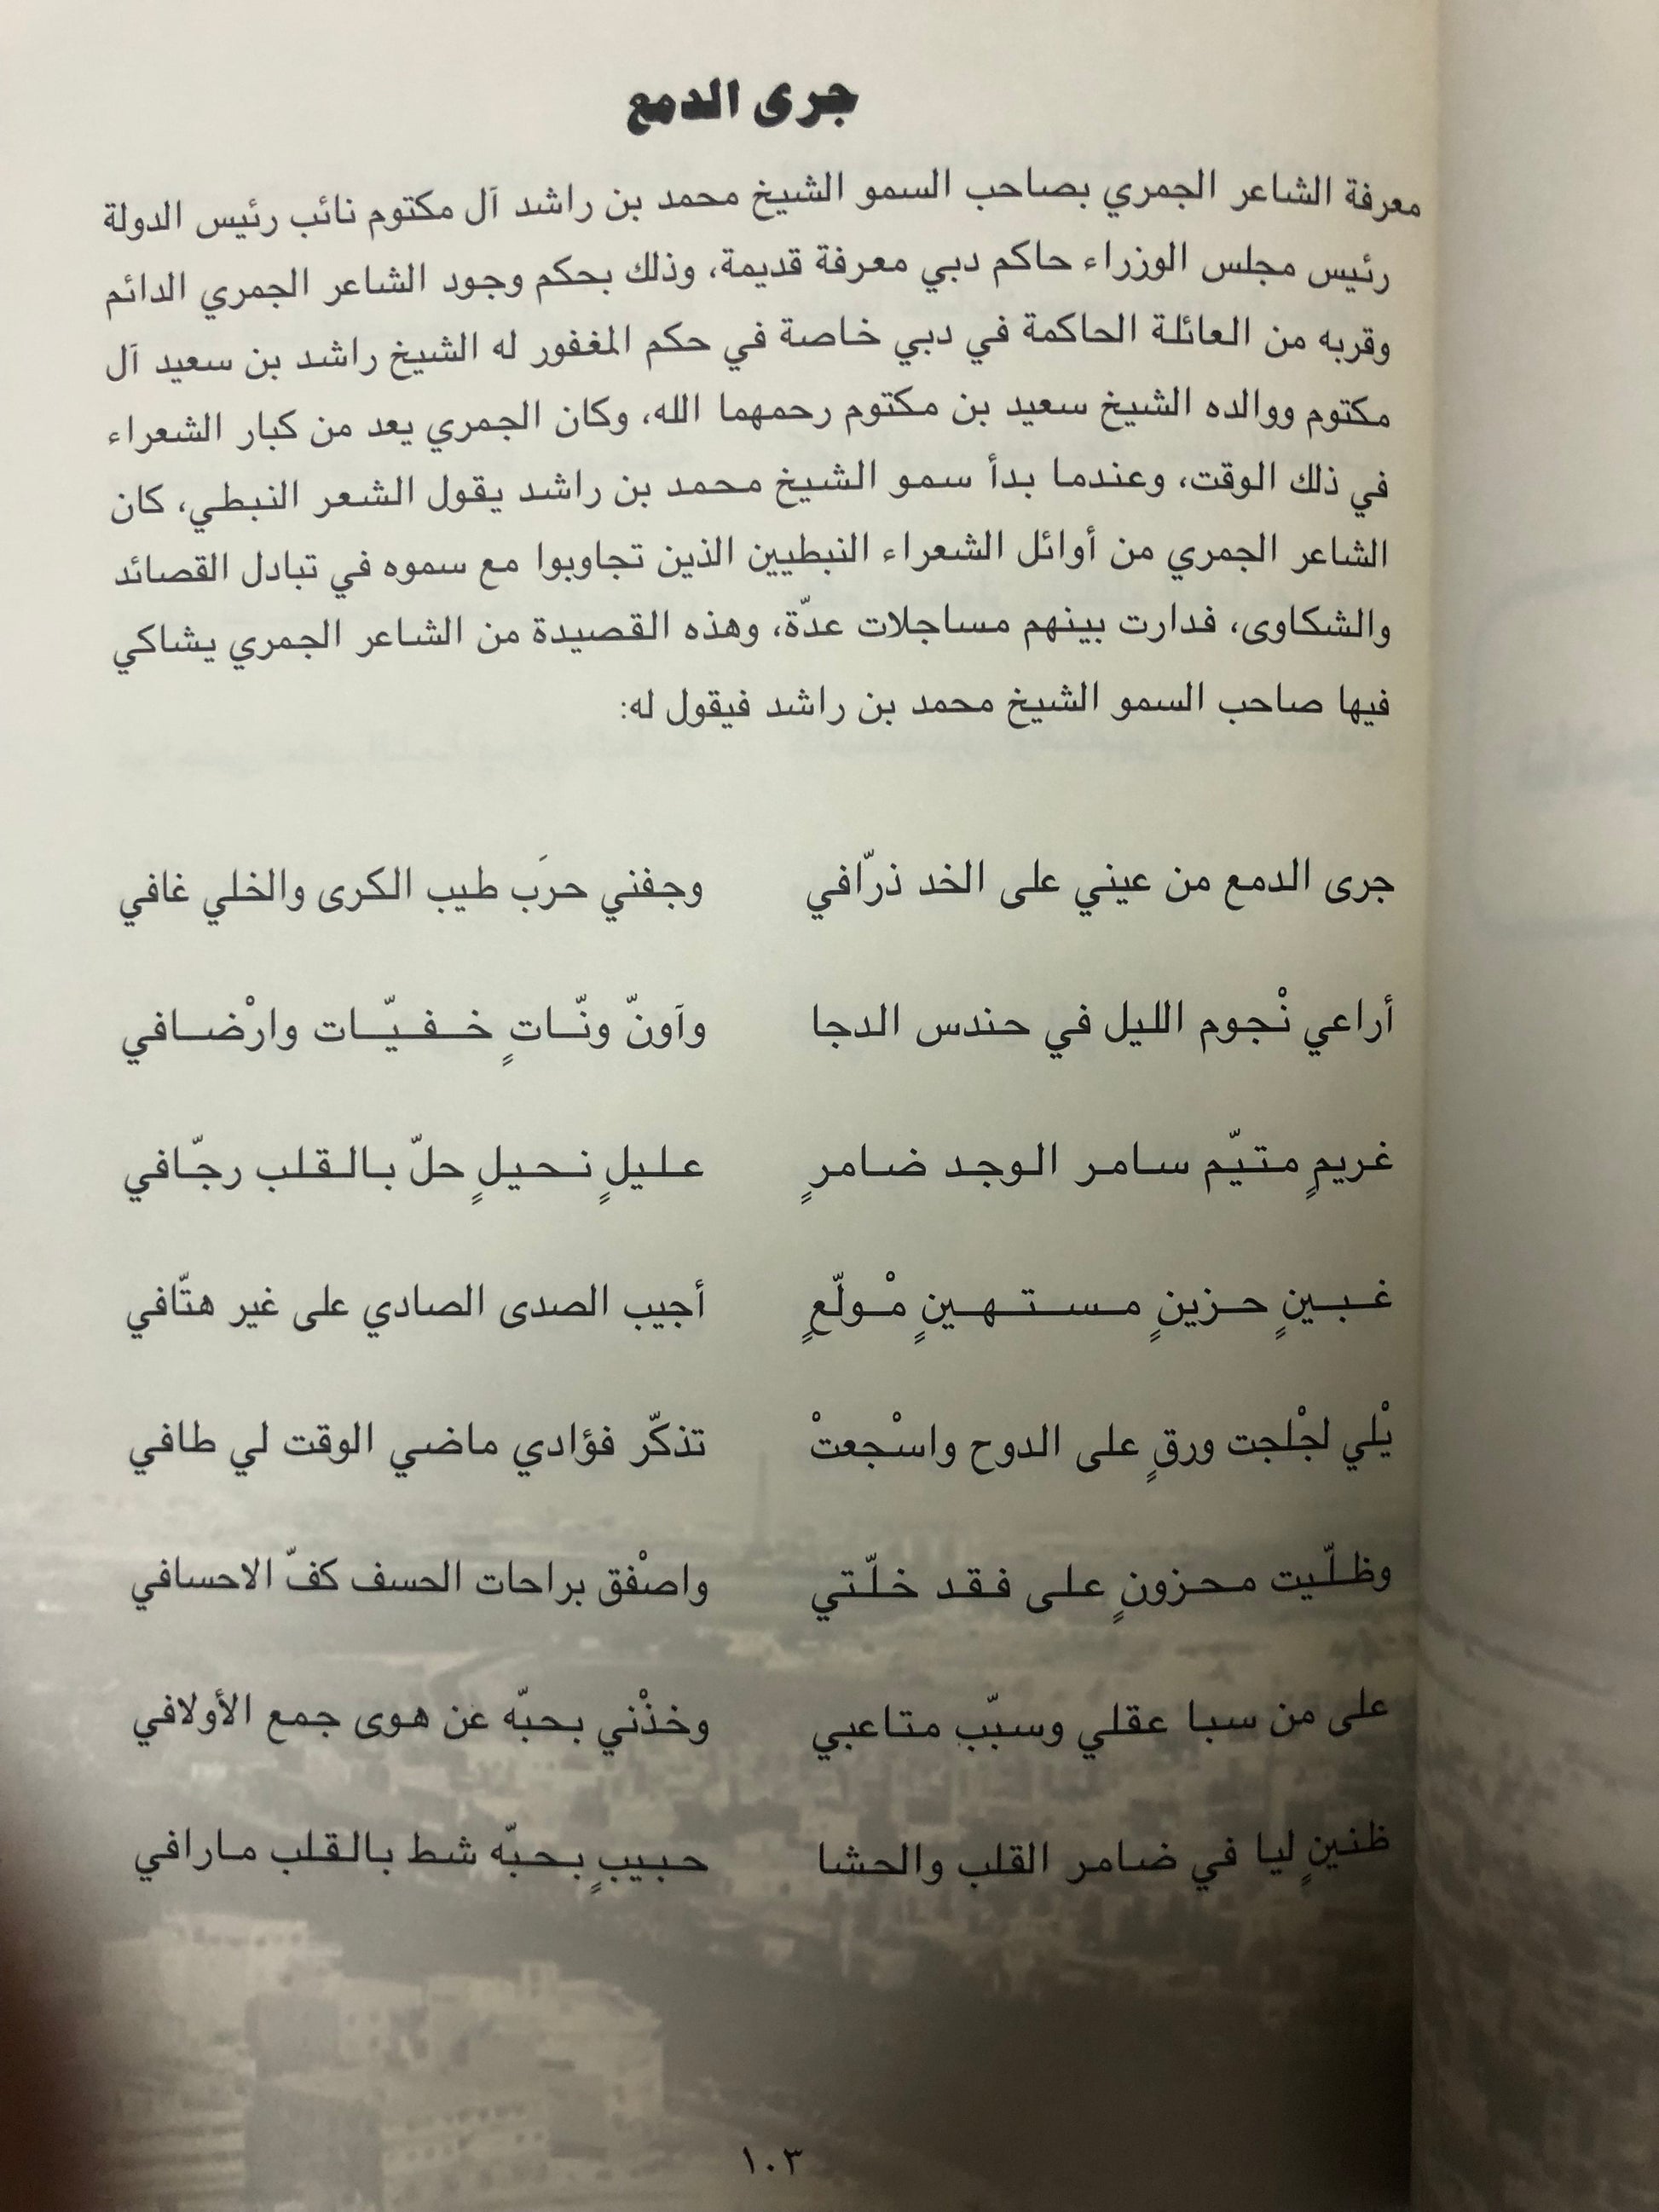 جرى الدمع
معرفة الشاعر الجمري بصاحب السمو الشيخ محمد بن راشد آل مكتوم نائب رئيس الدولة
رئيس مجلس الوزراء حاكم دبي معرفة قديمة، وذلك بحكم وجود الشاعر الجمري الدائم
وقربه من العائلة الحاكمة في دبي خاصة في حكم المغفور له الشيخ راشد بن سعيد آل
مكتوم ووالده الشيخ سعيد بن مكتوم رحمهما الله، وكان الجمري يعد من كبار الشعراء
في ذلك الوقت، وعندما بدأ سمو الشيخ محمد بن راشد يقول الشعر النبطي، كان
الشاعر الجمري من أوائل الشعراء النبطيين الذين تجاوبوا مع سموه في تبادل القصائد
والشكاوى، فدارت بينهم مساجلات عدّة، وهذه القصيدة من الشاعر الجمري يشاكي
فيها صاحب السمو الشيخ محمد بن راشد فيقول له:
جرى الدمع من عيني على الخد ذرّافي وجفني حرَب طيب الكرى والخلي غافي
أراعي نْجوم الليل في حندس الدجا وآونّ ونّاتٍ خفيّات وارْضافي
غريمٍ متيّم سامر الوجد ضامرٍ عليلٍ نحيلٍ حلّ بالقلب رجّافي
غبينٍ حزينٍ مستهينٍ مْولّعٍ أجيب الصدى الصادي على غير هتّافي
يْلي لجْلجت ورقٍ على الدوح واسْجعتْ تذكّر فؤادي ماضي الوقت لي طافي
وظلّيت محزونٍ على فقد خلّتي واصْفق براحات الحسف كفّ الاحسافي
على من سبا عقلي وسبّب متاعبي وخذْني بحبّه عن هوى جمع الأولافي
ظنينٍ ليا في ضامر القلب والحشا حبيبٍ بحبّه شط بالقلب مارافي
١٠٣